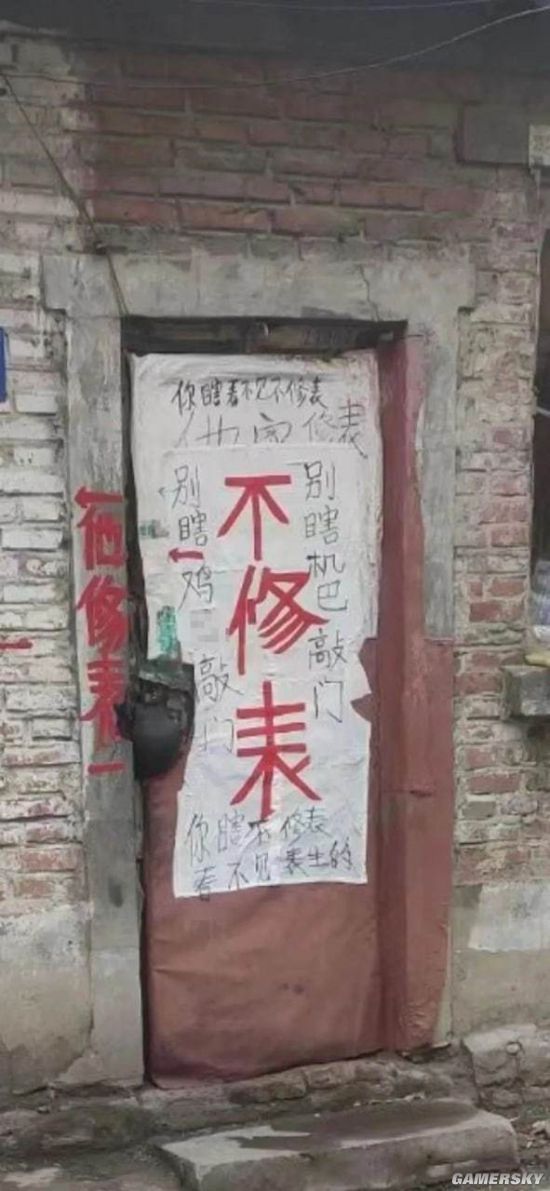 你瞎看不见不修表
他家修表
别瞎机巴敲门
不修表
别瞎鸡
敲门
他修表
你瞎不修表
看不见 表生的
GAMERSKY